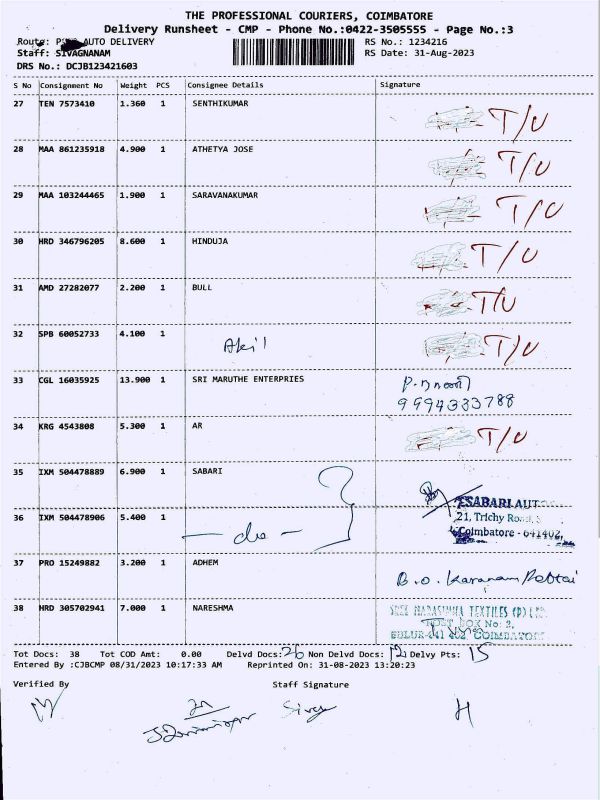 THE PROFESSIONAL COURIERS, COIMBATORE
Delivery Runsheet - CMP - Phone No.:0422-3505555 - Page No.:3
Route: AUTO DELIVERY RS No.: 1234216
Staff: SIVAGNANAM RS Date: 31-Aug-2023
DRS No.: DCJB123421603
S No Consignment No Weight PCS Consignee Details Signature
27 TEN 7573410 1.360 1 SENTHIKUMAR T/U
28 MAA 861235918 4.900 1 ATHETYA JOSE T/U
29 MAA 103244465 1.900 1 SARAVANAKUMAR T/U
30 HRD 346796205 8.600 1 HINDUJA T/U
31 AMD 27282077 2.200 1 BULL T/U
32 SPB 60052733 4.100 1 Akil T/U
33 CGL 16035925 13.900 1 SRI MARUTHE ENTERPRIES
9994333788
34 KRG 4543808 5.300 1 AR T/U
35 IXM 504478889 6.900 1 SABARI
SABARI AUTO
36 IXM 504478906 5.400 1 - do - 21, Trichy Road,
Coimbatore - 641402,
37 PRO 15249882 3.200 1 ADHEM
B.O. Karanam
38 HRD 305702941 7.000 1 NARESHMA
SREE NARASIMHA TEXTILES (P) LTD
POST BOX No: 2,
COIMBATORE
Tot Docs: 38 Tot COD Amt: 0.00 Delvd Docs: 26 Non Delvd Docs: 12 Delvy Pts: 15
Entered By :CJBCMP 08/31/2023 10:17:33 AM Reprinted On: 31-08-2023 13:20:23
Verified By Staff Signature